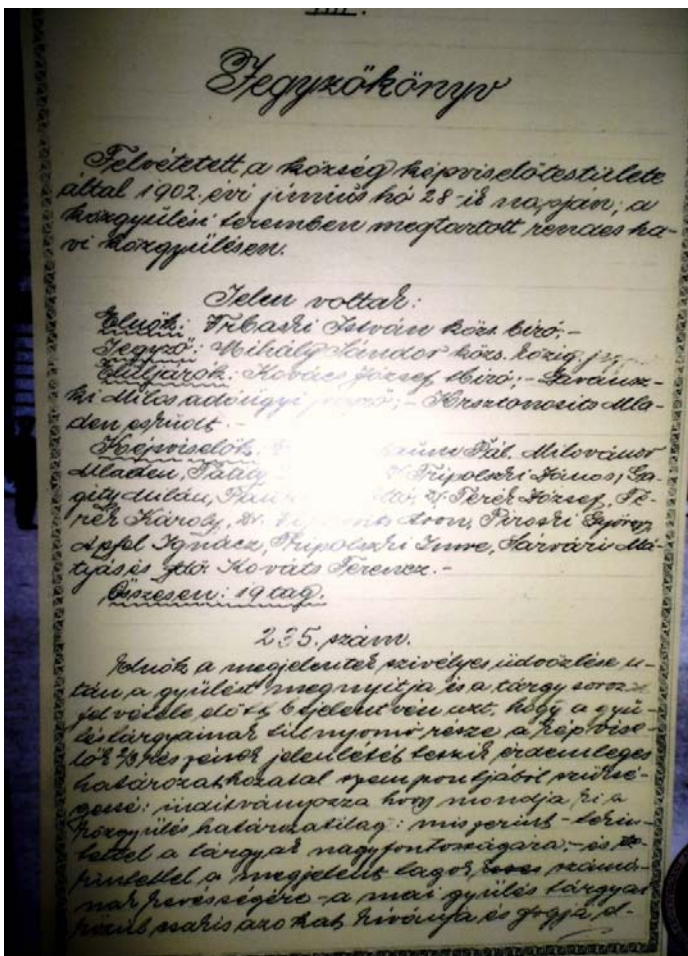 III.
Jegyzőkönyv
Felvétetett, a község képviselőtestülete
által 1902. évi június hó 28-ik napján, a
közgyülési teremben megtartott rendes ha-
vi közgyülésen.
Jelen voltak:
Elnök: Tribaszki István közs. biró, -
Jegyző: Mihály Sándor közs. közig.
Elüljárók: Kovács József t. biró, -
ki Milos adóügyi - Krsztonosits Mla-
den esküdt. -
Képviselők: Pál, Milovánov
Mladen, Tripolszki János, Ga-
gity Milán, Perék József, Pe-
rék Károly, Dr. Áron, Piroski György,
Apfel Ignácz, Tripolszki Imre, Sárvári Má-
tyás és Kováts Ferencz. -
Összesen: 19 tag.
235. szám.
Elnök a megjelentek szivélyes üdvözlése u-
tán, a gyülést megnyitja és a tárgysoroz
felvétele előtt, bejelentvén azt, hogy a gyü-
lés tárgyainak tulnyomó része a képvise-
lők 2/3 részének jelenlétét teszik érdemleges
határozathozatal szempontjából szüksé-
gessé: inditványozza hogy mondja ki a
közgyülés határozatilag: miszerint - tekin-
tettel a tárgyak nagyfontosságára, - és te-
kintettel a megjelent tagok számá-
nak kevésségére - a mai gyülés tárgyai
közül csakis azokat kivánja és fogja el-